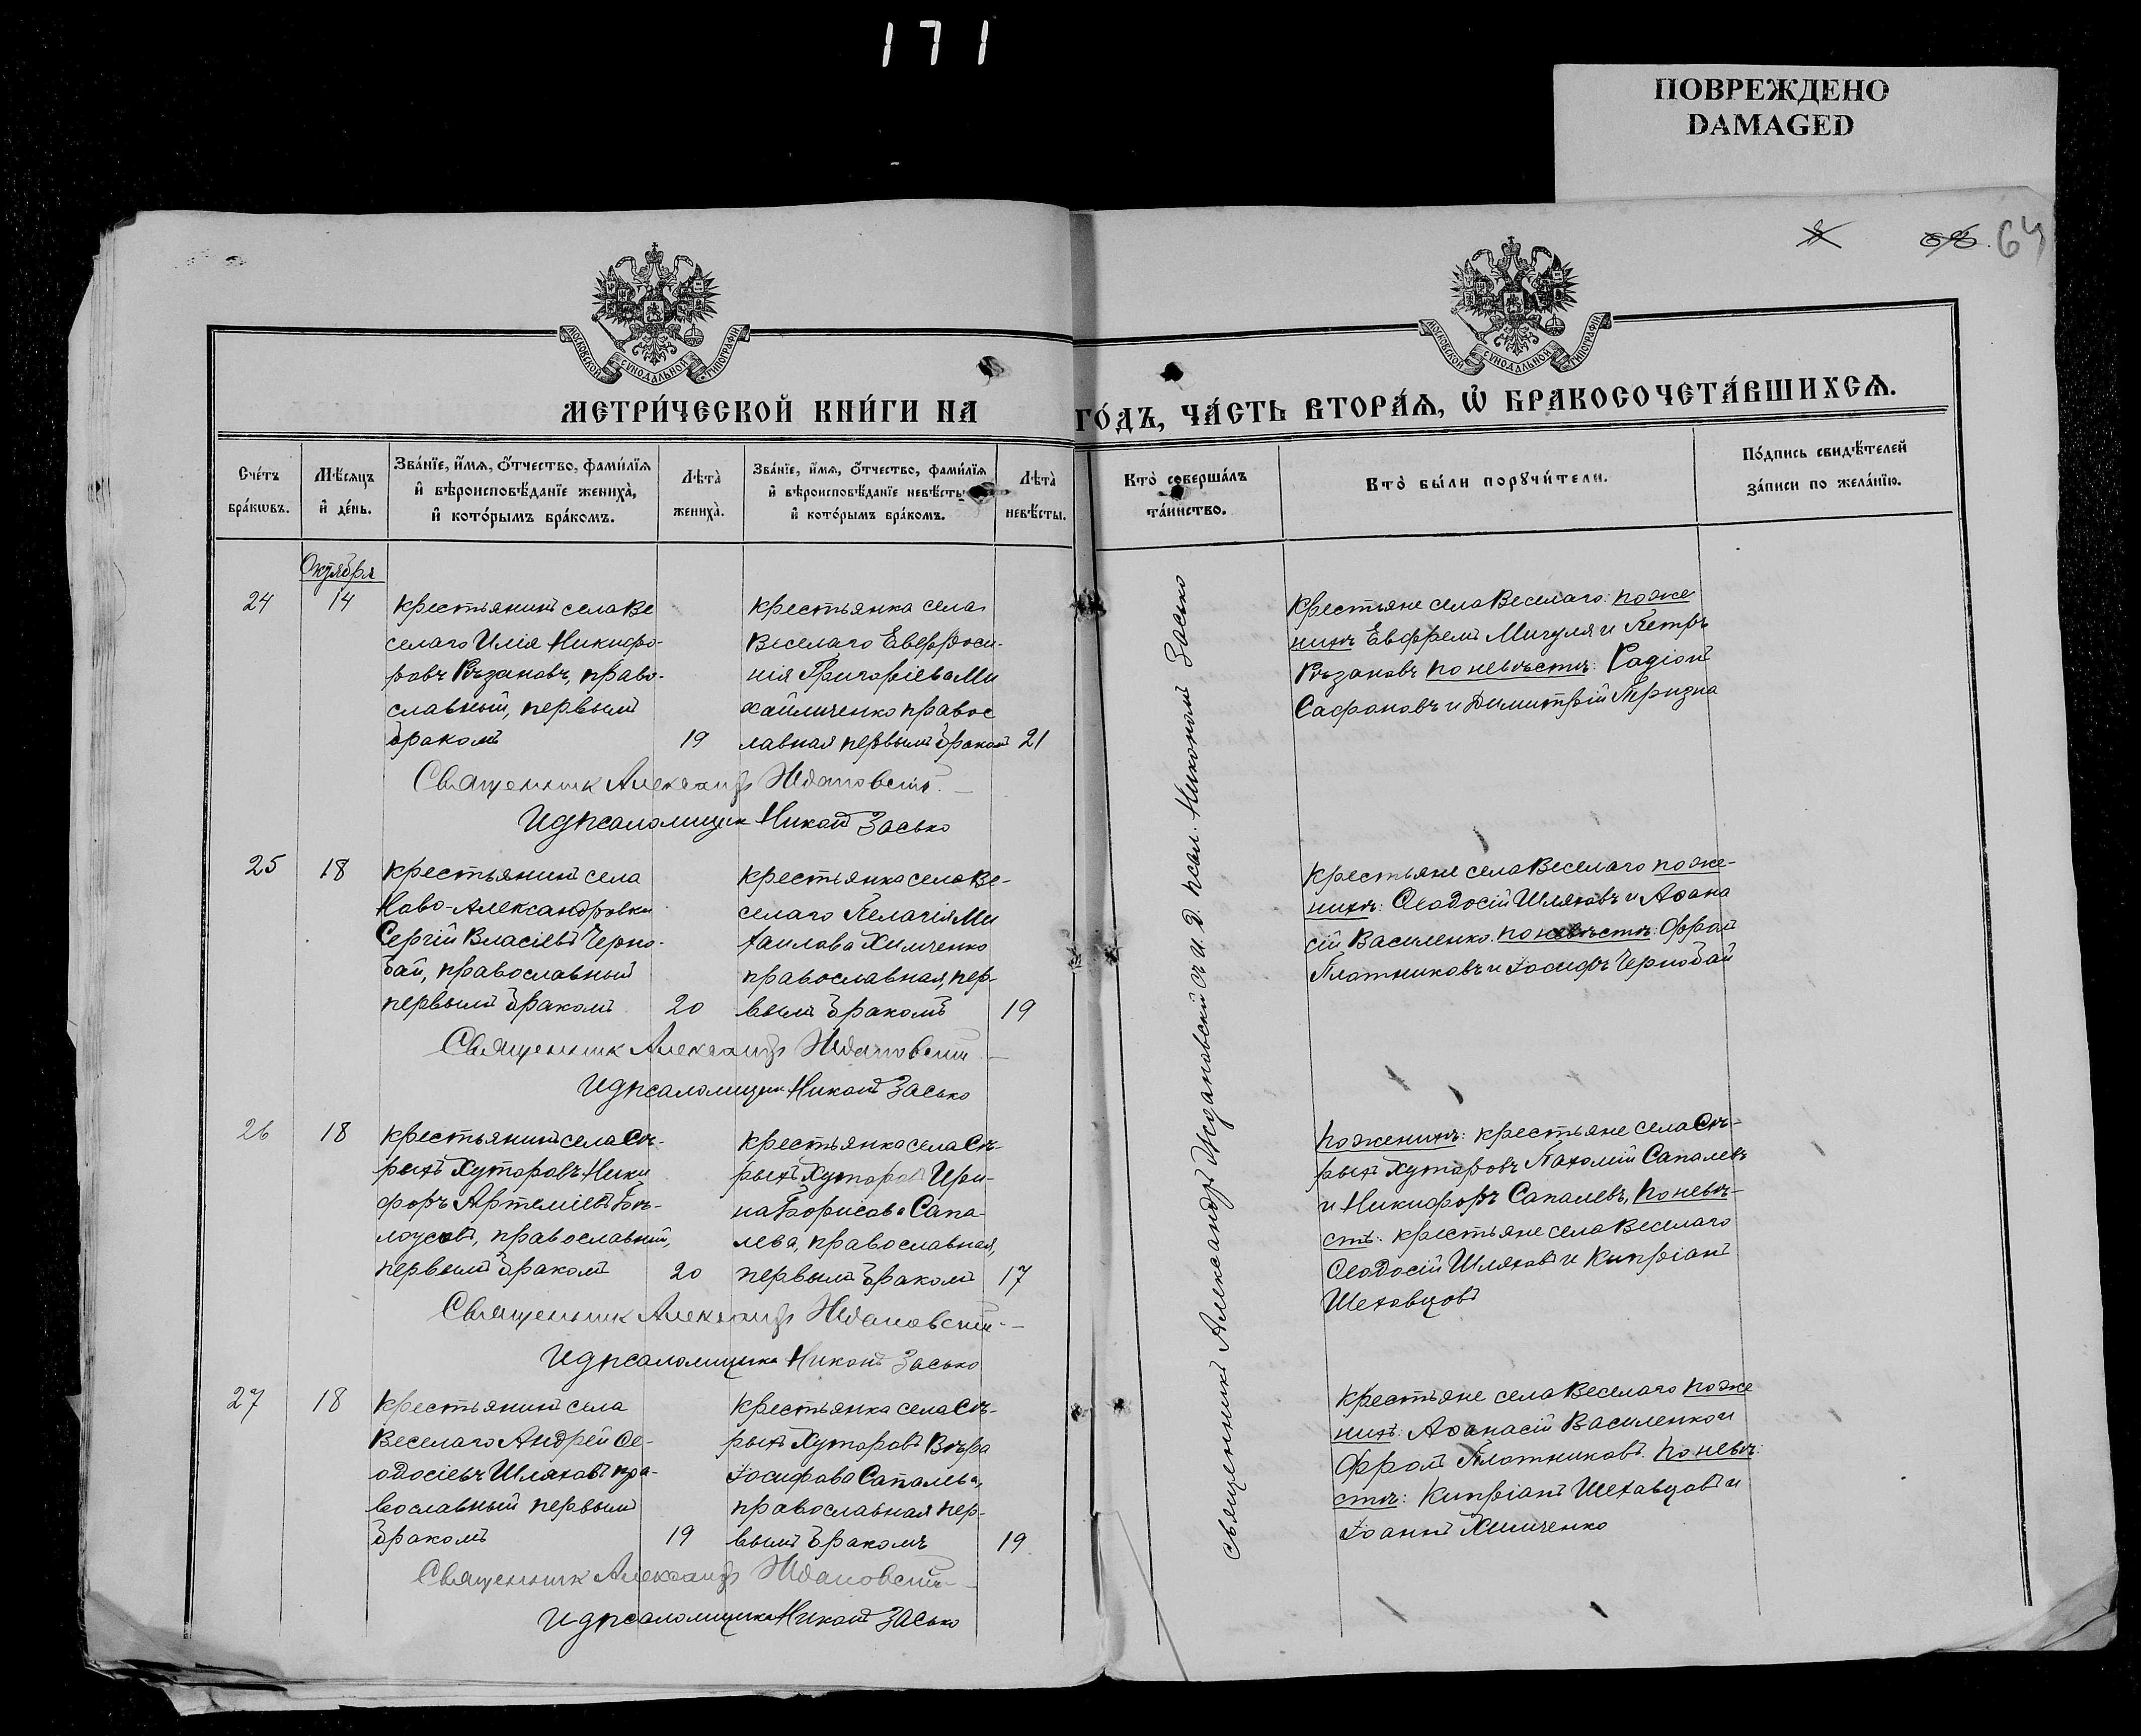 171
ПОВРЕЖДЕНО
DAMAGED
64
МОСКОВСКОЙ СѴНОДАЛЬНОЙ ТИПОГРАФІИ
МОСКОВСКОЙ СѴНОДАЛЬНОЙ ТИПОГРАФІИ
МЕТРИ́ЧЕСКОЙ КНИ́ГИ НА
ГО́ДЪ, ЧА́СТЬ ВТОРА́Ѧ, Ѡ҆ БРАКОСОЧЕТА́ВШИХСѦ.
Сче́тъ
бра́кѡвъ.
Мѣ́сяцъ
и҆ де́нь.
Зва́нїе, и҆́мѧ, ѻ҆́тчество, фами́лїѧ
и҆ вѣроисповѣ́данїе жениха̀,
и҆ кото́рымъ бра́комъ.
Лѣта̀
жениха̀.
Зва́нїе, и҆́мѧ, ѻ҆́тчество, фами́лїѧ
и҆ вѣроисповѣ́данїе невѣ́сты
и҆ кото́рымъ бра́комъ.
Лѣта̀
невѣ́сты.
Кто̀ соверша́лъ
та́инство.
Кто̀ бы́ли порꙋчи́тели.
По́дпись свидѣ́телей
за́писи по жела́нїю.
Октября
24
14
Крестьянинъ села Ве
селаго Илія Никифо-
ровъ Рѣзановъ, право-
славный, первымъ
бракомъ
19
Крестьянка села
Веселаго Евфроси-
нія Григоріева Ми
хайличенко правос
лавная первымъ бракомъ
21
Крестьяне села Веселаго: по же
нихѣ Евфремъ Мигуля и Петръ
Рѣзановъ по невѣстѣ: Радіонъ
Сафоновъ и Димитрій Тризна
Священникъ Александръ Ждановскій
И д псаломщика Никонъ Засько
25
18
Крестьянинъ села
Ново-Александровки
Сергій Власіевъ Черно-
бай, православный
первымъ бракомъ
20
Крестьянка села Ве-
селаго Пелагія Ми
хаилова Химченко
православная, пер-
вымъ бракомъ
19
Крестьяне села Веселаго по же-
нихѣ: Ѳеодосій Шляховъ и Аѳана
сій Василенко. по невѣстѣ: Фролъ
Плотниковъ и Іосифъ Чернобай
Священникъ Александръ Ждановскій
И д псаломщика Никонъ Засько
26
18
Крестьянинъ села Сѣ-
рыхъ Хуторовъ Ники
форъ Артеміевъ Бѣ-
лоусовъ, православный,
первымъ бракомъ
20
Крестьянка села Сѣ-
рыхъ Хуторовъ Ири-
на Борисова Сапа-
лева, православная,
первымъ бракомъ
17
По женихѣ: крестьяне села Сѣ-
рыхъ Хуторовъ Пахомій Сапалевъ
и Никифоръ Сапалевъ, по невѣ-
стѣ: крестьяне села Веселаго
Ѳеодосій Шляховъ и Кипріанъ
Шеховцовъ
Священникъ Александръ Ждановскій
И д псаломщика Никонъ Засько
27
18
Крестьянинъ села
Веселаго Андрей Ѳе-
одосіевъ Шляховъ пра-
вославный первымъ
бракомъ
19
Крестьянка села Сѣ-
рыхъ Хуторовъ Вѣра
Іосифова Сапалева,
православная пер-
вымъ бракомъ
19
Крестьяне села Веселаго по же
нихѣ: Аѳанасій Василенко и
Фролъ Плотниковъ. По невѣ-
стѣ: Кипріанъ Шеховцовъ и
Іоаннъ Химченко
Священникъ Александръ Ждановскій
И д псаломщика Никонъ Засько
Священникъ Александръ Ждановскій съ и. д. псал. Никономъ Засько